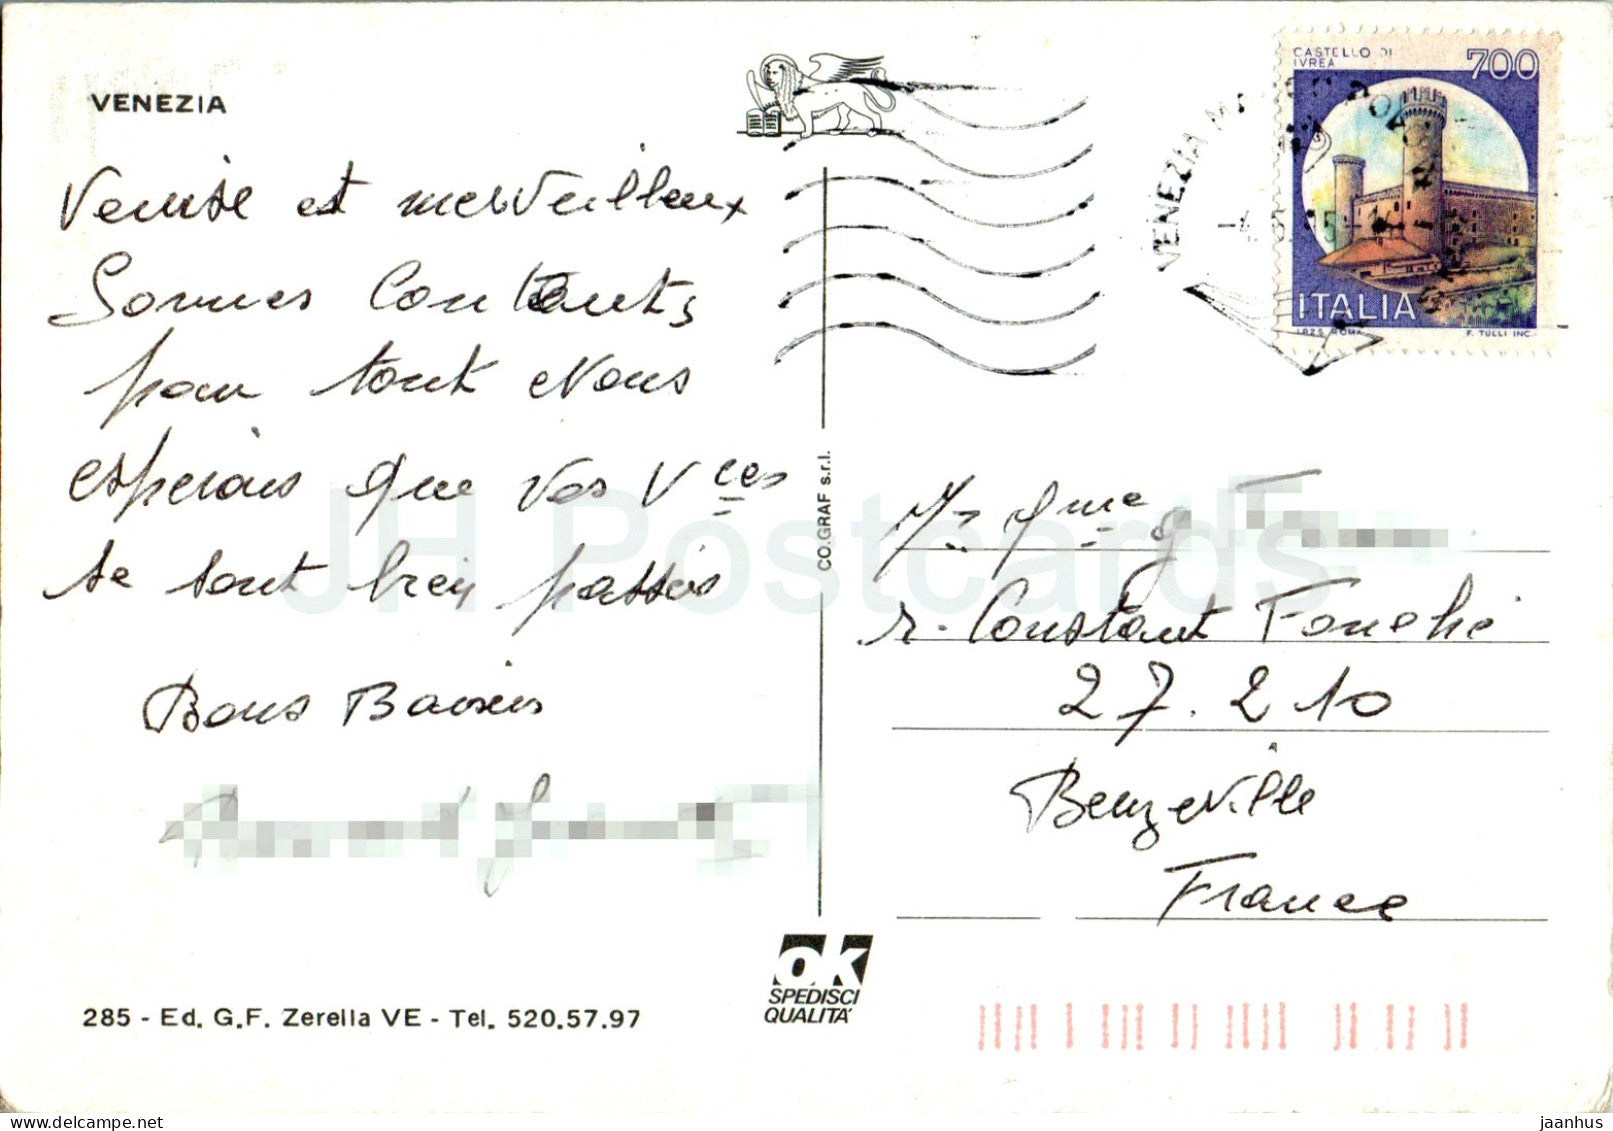 VENEZIA
Venise est merveilleux
Sommes Contents
pour tout Nous
esperons que vos Vces
se sont bien passées
Bons Baisers
285 - Ed. G.F. Zerella VE - Tel. 520.57.97
CO.GRAF s.r.l.
OK
SPEDISCI
QUALITA'
VENEZIA
CASTELLO DI
IVREA
700
ITALIA
I.P.Z.S. ROMA
F. TULLI INC.
Mr & Mme
r. Constant Fouché
27.210
Beuzeville
France
JH Postcards
www.delcampe.net
jaanhus